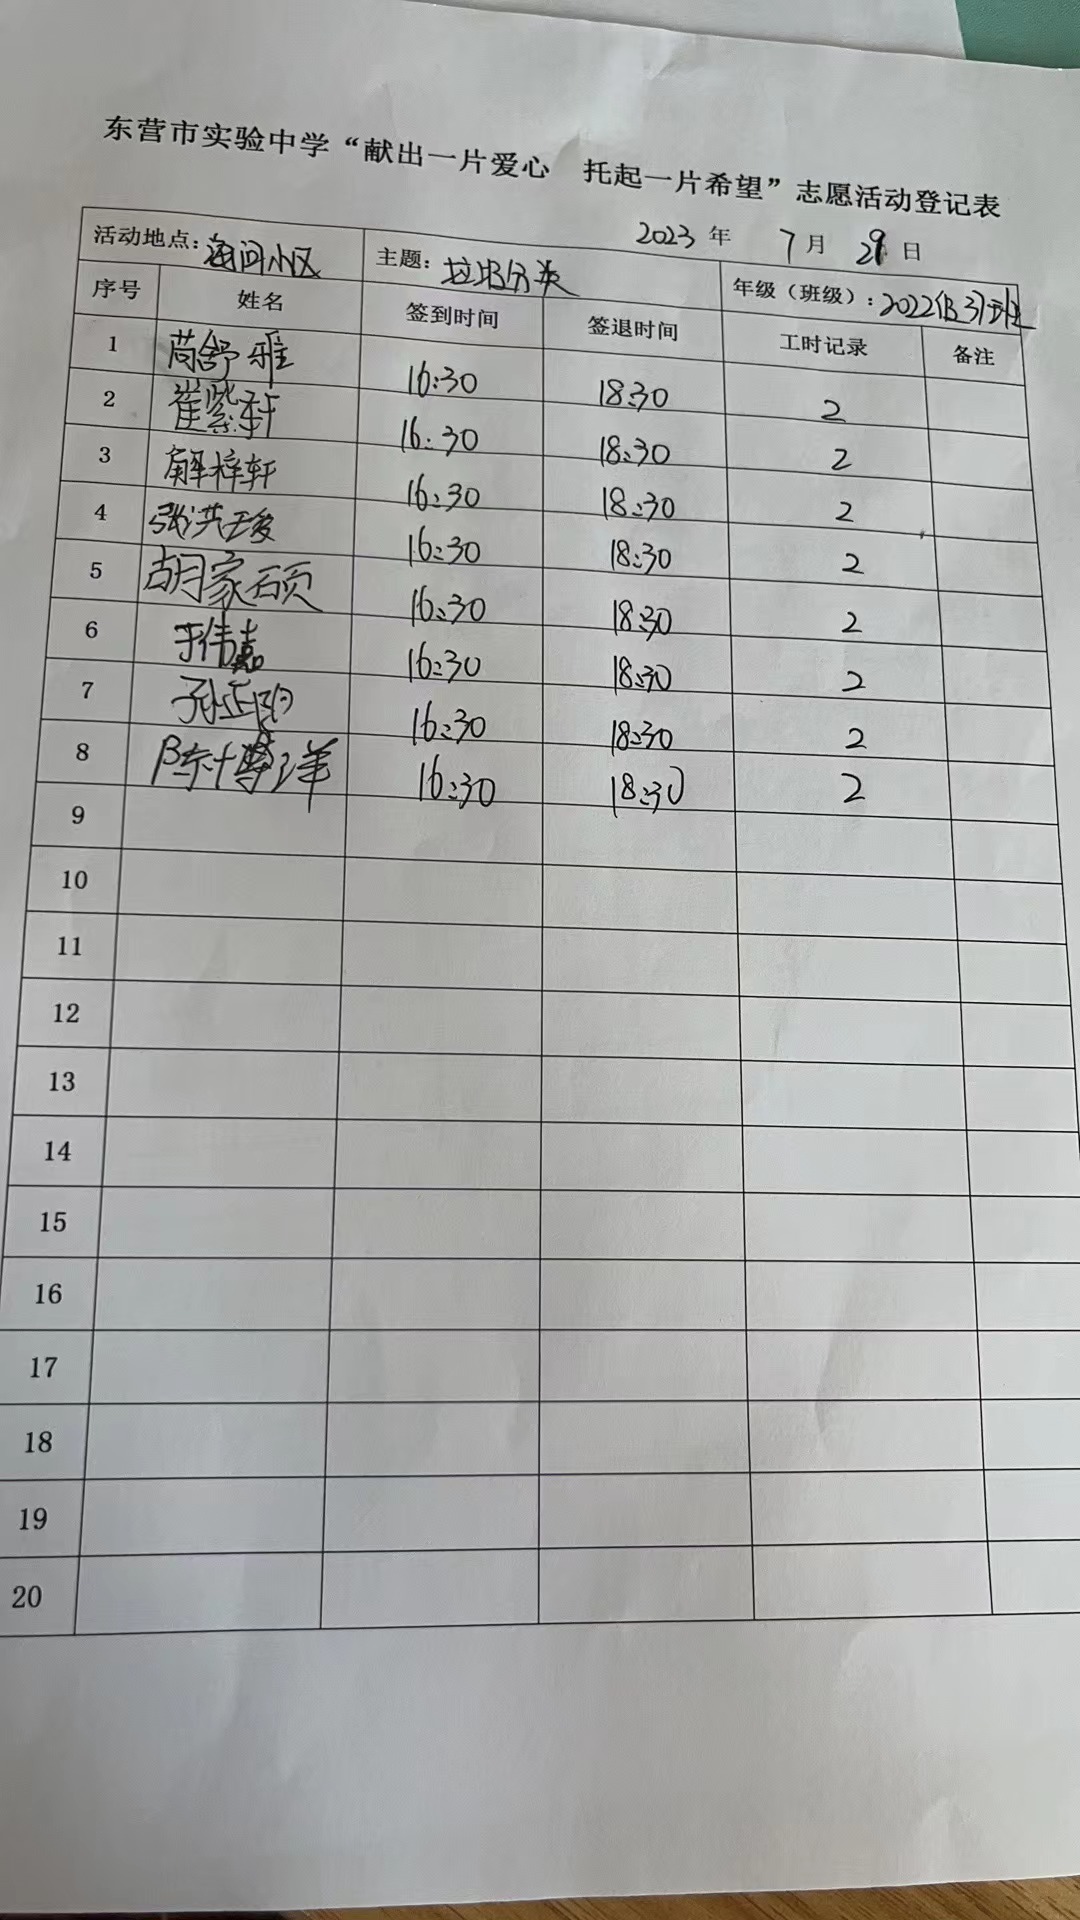 东营市实验中学“献出一片爱心 托起一片希望”志愿活动登记表
2023 年 7 月 29 日
活动地点: 海河小区 主题: 垃圾分类 年级（班级）: 2022级3班
序号 姓名 签到时间 签退时间 工时记录 备注
1 舒雅 16:30 18:30 2
2 崔紫轩 16:30 18:30 2
3 解梓轩 16:30 18:30 2
4 张洪 16:30 18:30 2
5 胡家硕 16:30 18:30 2
6 于伟嘉 16:30 18:30 2
7 孙正阳 16:30 18:30 2
8 陈博洋 16:30 18:30 2
9
10
11
12
13
14
15
16
17
18
19
20